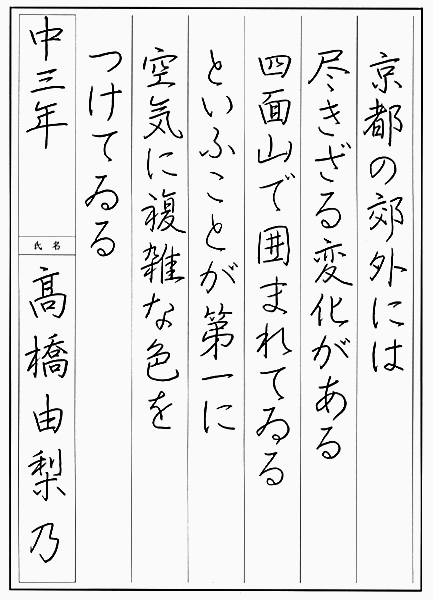 京都の郊外には
尽きざる変化がある
四面山で囲まれてゐる
といふことが第一に
空気に複雑な色を
つけてゐる
中三年
氏名
高橋由梨乃